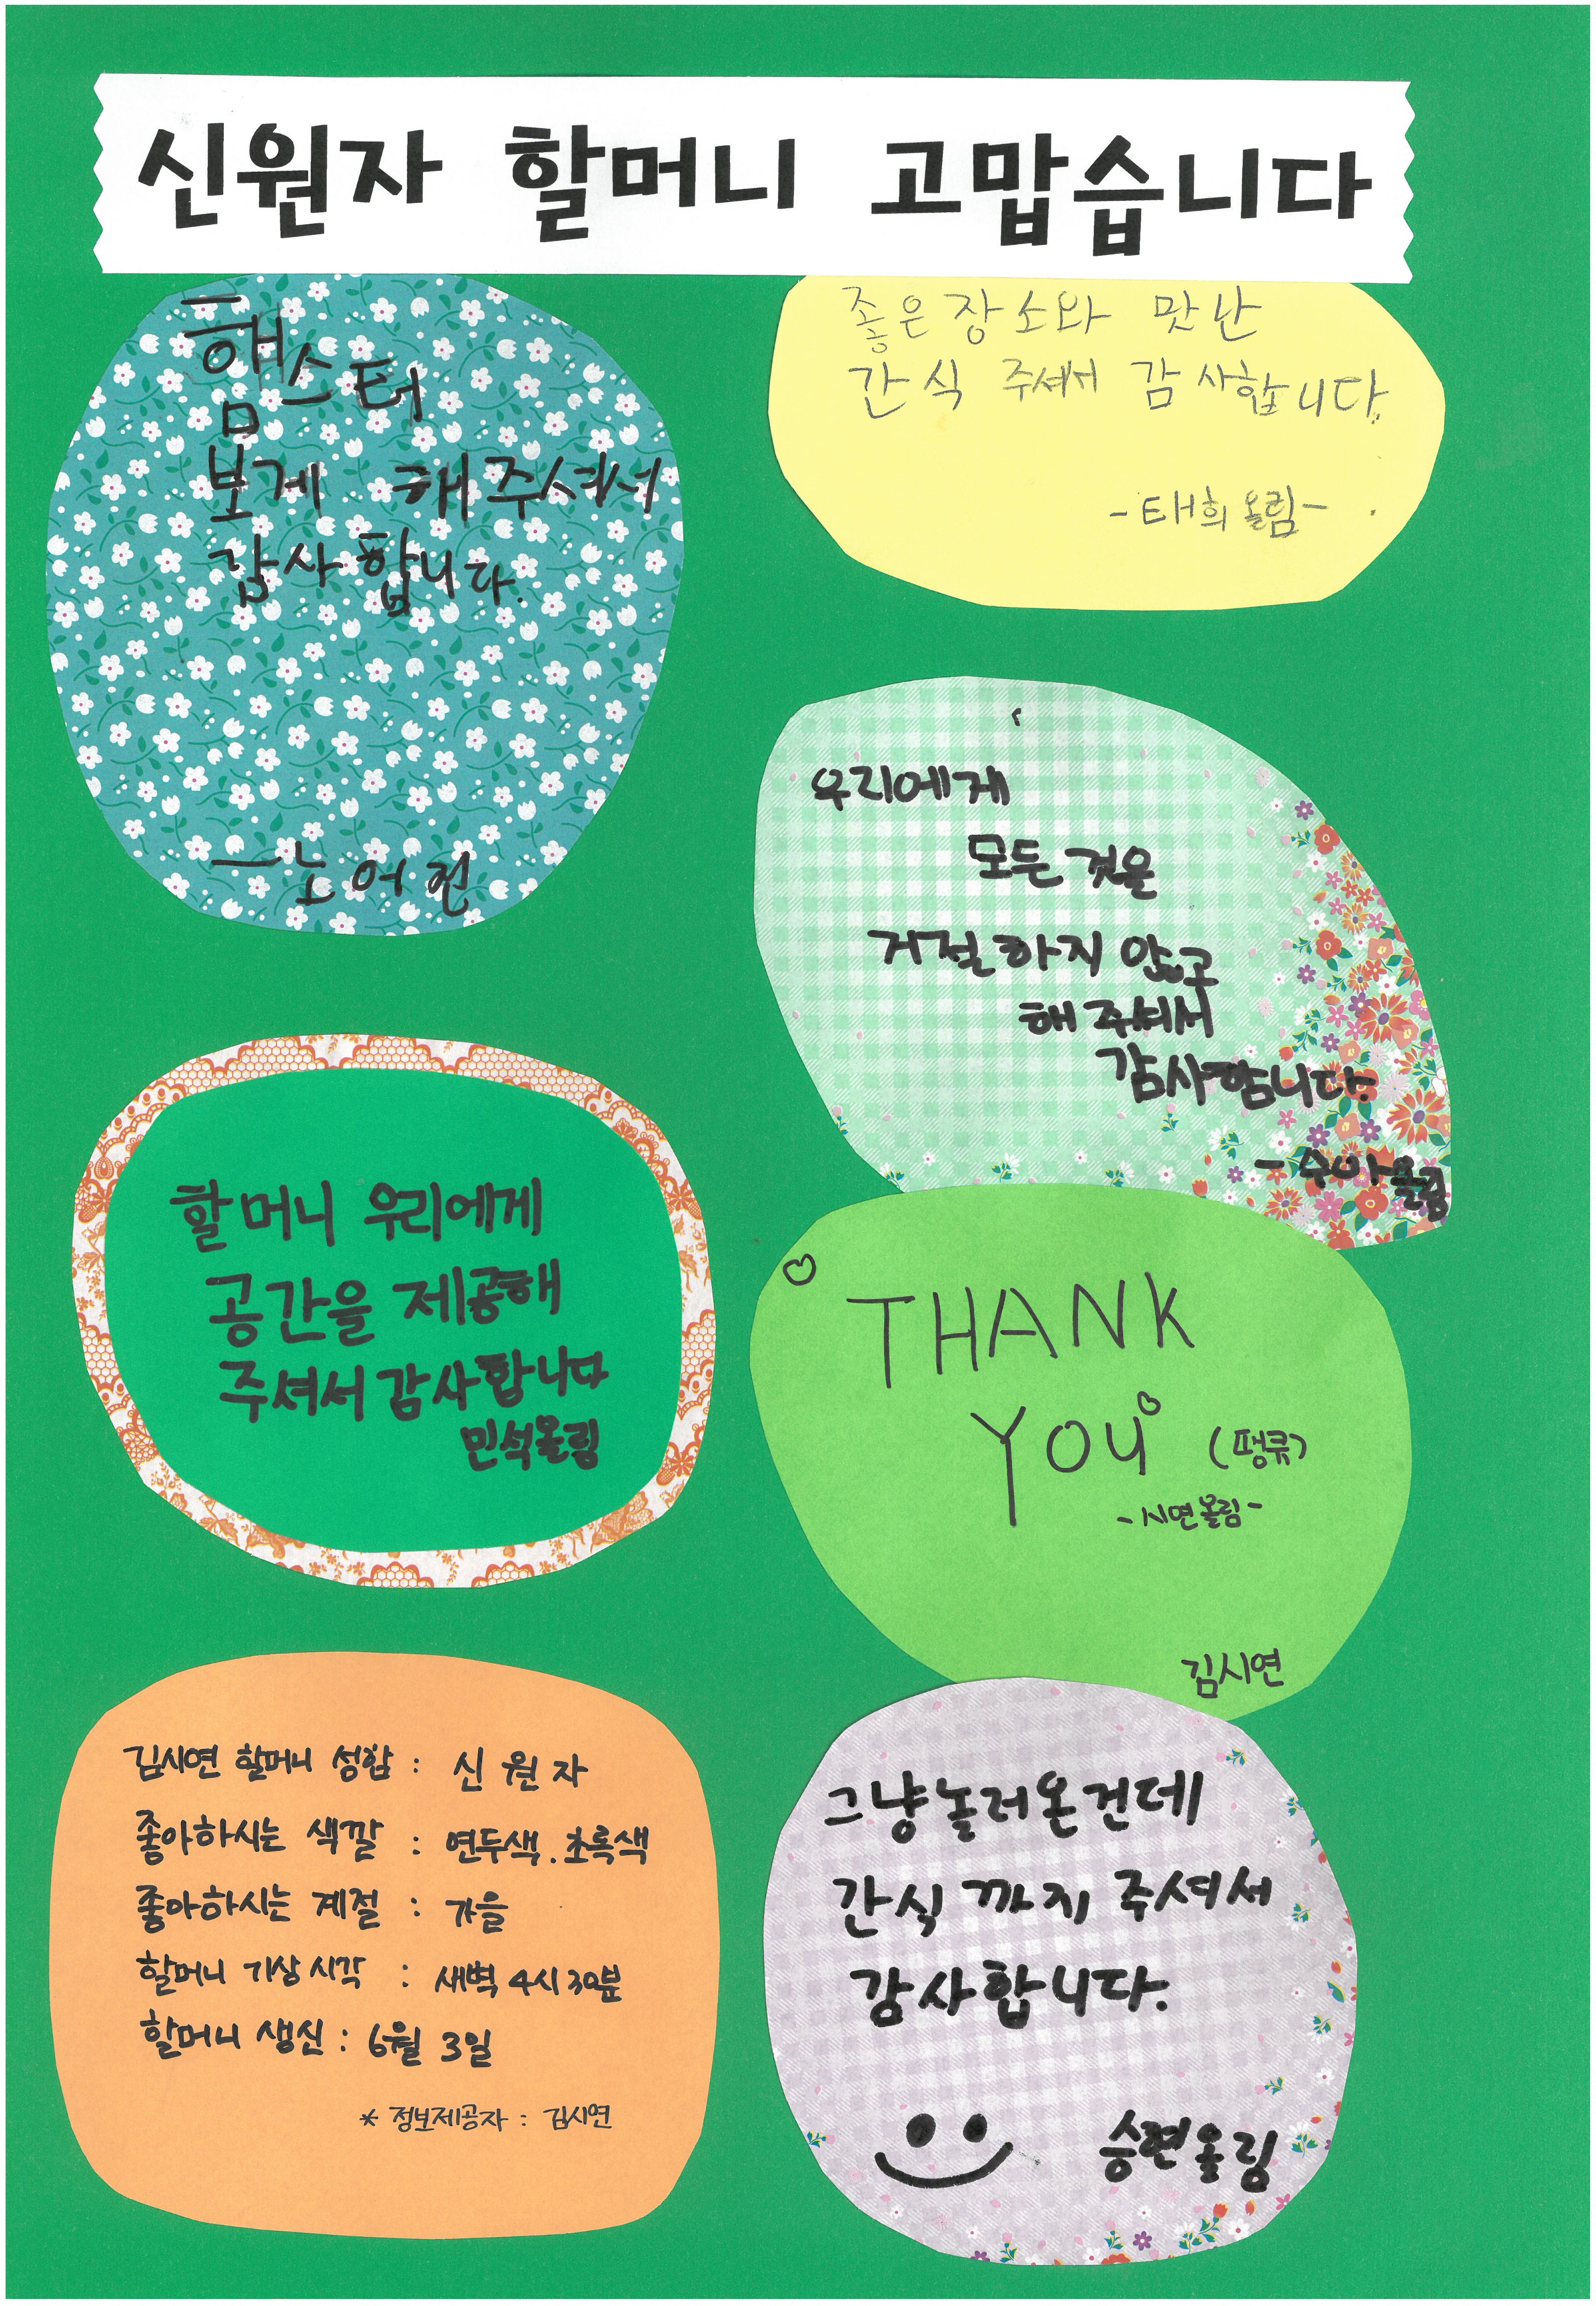 신원자 할머니 고맙습니다
햄스터
보게 해주셔서
감사합니다.
좋은장소와 맛난
간식 주셔서 감사합니다.
-태희올림-
우리에게
모든 것을
거절하지 않고
해주셔서
감사합니다.
-수아올림
할머니 우리에게
공간을 제공해
주셔서 감사합니다
민석올림
THANK
YOU (땡큐)
-시연올림-
김시연
김시연 할머니 성함 : 신원자
좋아하시는 색깔 : 연두색.초록색
좋아하시는 계절 : 가을
할머니 기상시각 : 새벽 4시30분
할머니 생신 : 6월 3일
* 정보제공자 : 김시연
그냥놀러온건데
간식까지 주셔서
감사합니다.
승현올림